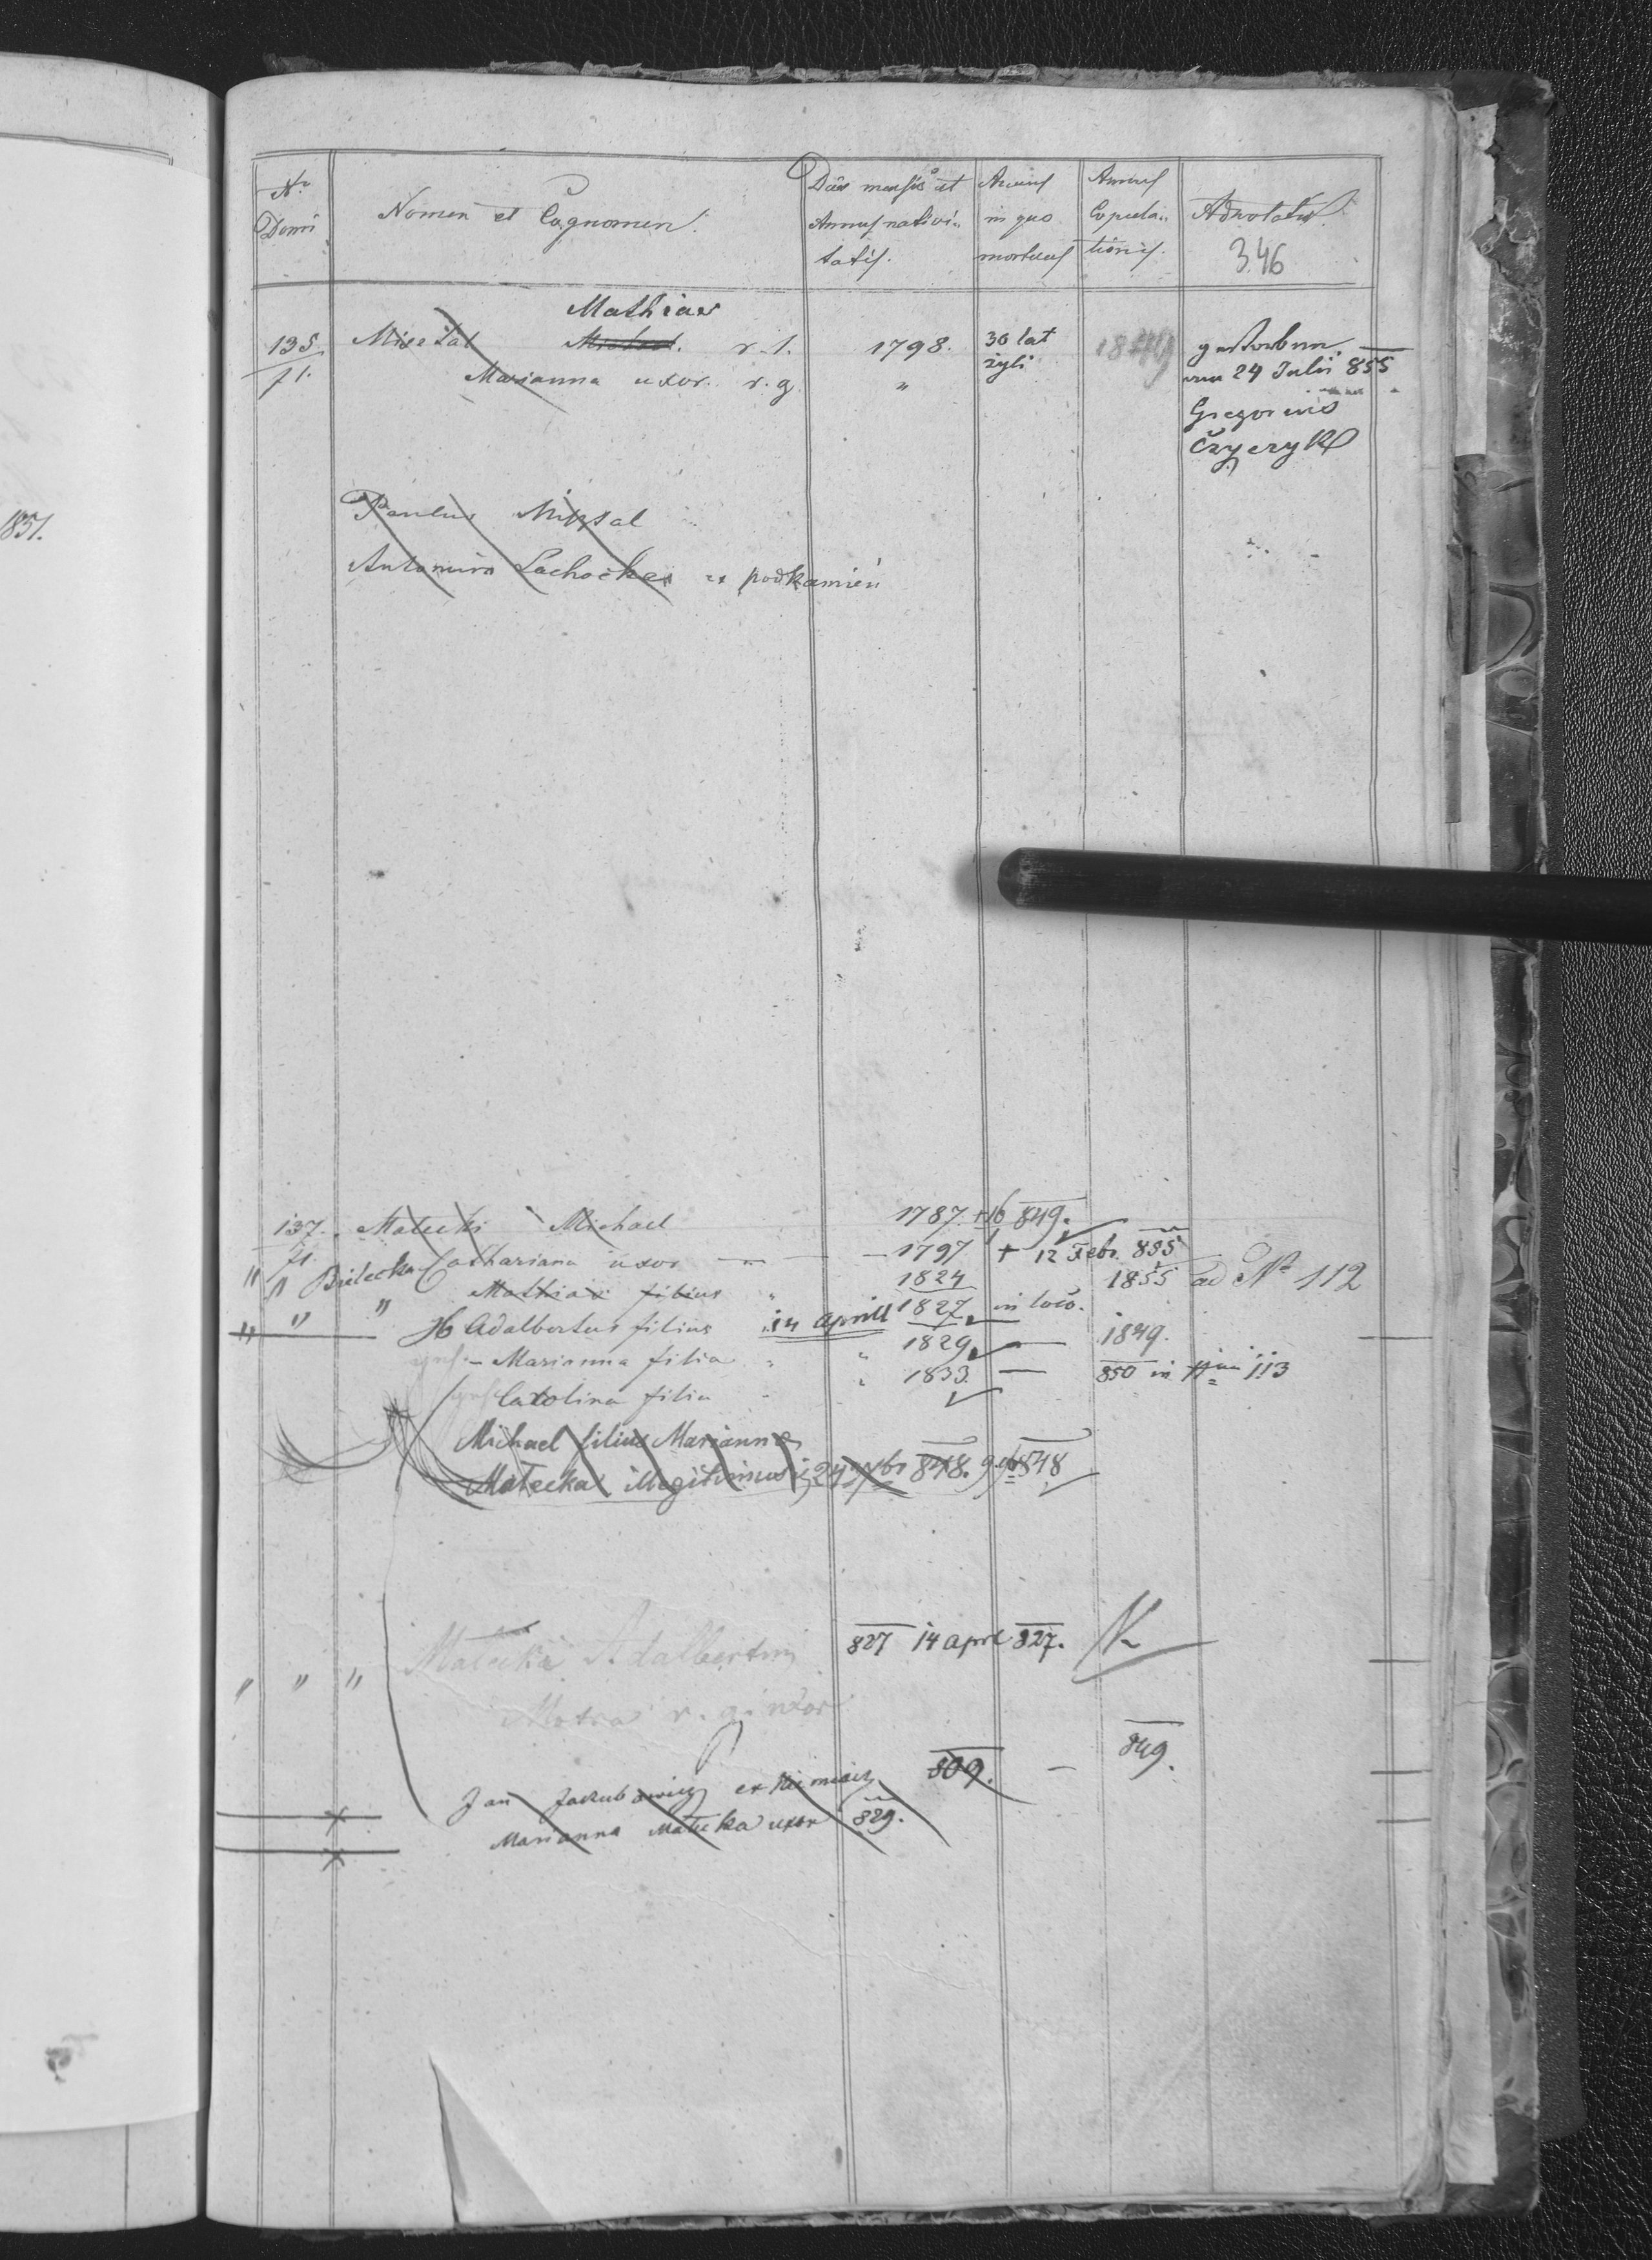 1851.
Nr Domi
Nomen et Cognomen.
Dies mensis et Annus nativitatis.
Annus in quo mortuus
Annus Copulationis.
Adnotatus.
346
Mathias
135 Misztal r. l. 1798. 30 lat żyli 1849 gestorben
71. Marianna uxor. r. g. " 24 Julii 855
Gregorius
Czyczyk
Paulus Misztal
Antonina ex podkamień
137. Malecki Michael 1787. + 16 849.
71. Bielecka Catharina uxor — 1797 + 12 Febr. 855
" " Mathias filius " 1824 1855 ad No 112
" " " Adalbertus filius 14 Aprill 1827 in loco.
Marianna filia " " 1829 — 1849.
Carolina filia " 1833. — 850 in 113
Michael filius Marianna
Malecka illegitimus 24 9br 848. 848
" " " Malecki Adalbertus 827 14 Aprl 827.
r. g. uxor
Jan Jakubowicz ex 809. — 849.
Marianna Malecka uxor 829.